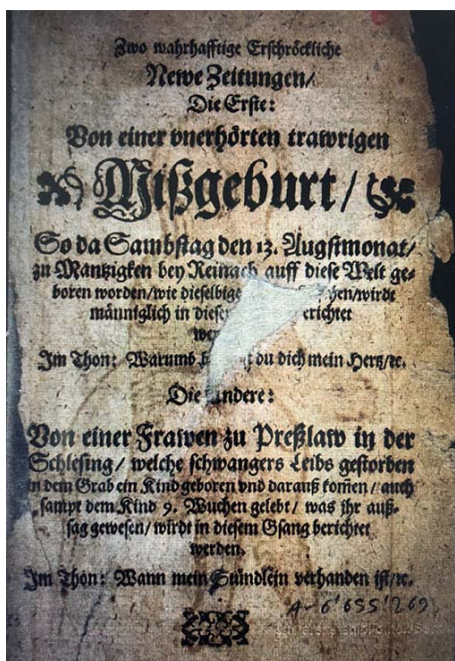 Zwo wahrhafftige Erschröckliche
Newe Zeitungen/
Die Erste:
Von einer vnerhörten trawrigen
Mißgeburt/
So da Sambstag den 13. Augstmonat/
zu Mantzigken bey Reinach auff diese Welt ge-
boren worden/wie dieselbige hen/wirdt
männiglich in diesem erichtet
Im Thon: Warumb du dich mein Hertz/ec.
Die Andere:
Von einer Frawen zu Preßlaw in der
Schlesing/ welche schwangers Leibs gestorben
in dem Grab ein Kind geboren vnd darauß kommen/ auch
sampt dem Kind 9. Wuchen gelebt/ was ihr auß-
sag gewesen/ wirdt in diesem Gsang berichtet
werden.
Im Thon: Wann mein Sündlein verhanden ist/ec.
A-6'655'269